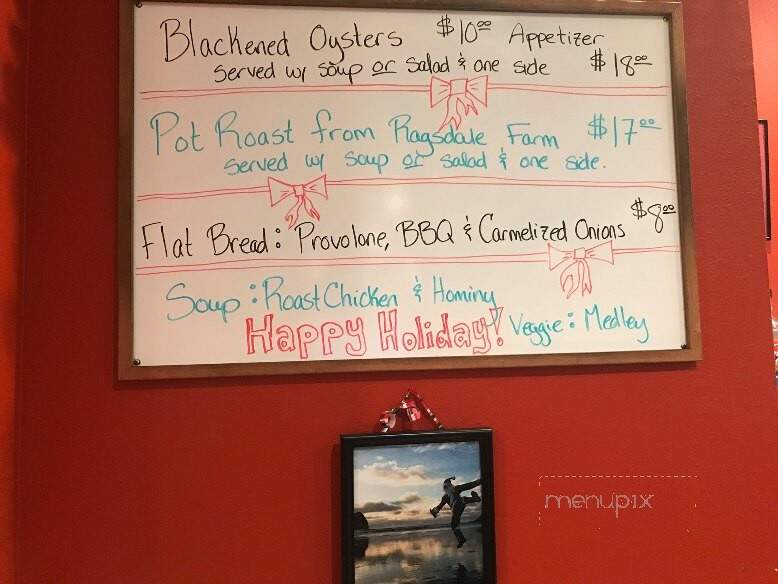 Blackened Oysters $10.00 Appetizer
Served w/ soup or salad & one side $18.00
Pot Roast from Ragsdale Farm $17.00
Served w/ soup or salad & one side.
Flat Bread: Provolone, BBQ & Carmelized Onions $8.00
Soup: Roast Chicken & Hominy
Happy Holiday! Veggie: Medley
menupix